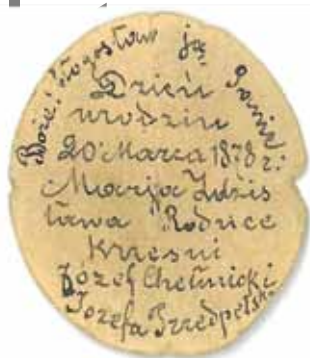 Boże! Błogosław ją Panie
Dzień
urodzin
20 Marca 1878 r:
Marja Zdzis
ława Rodzice
Krzesni
Józef Chełmicki
Józefa Przedpełska